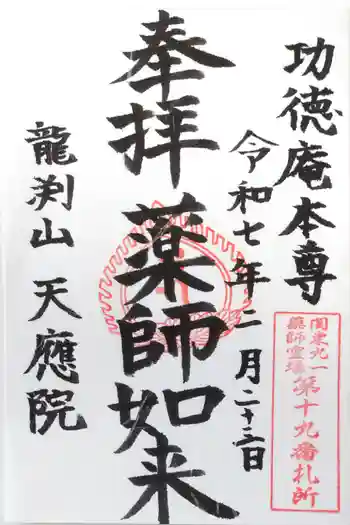 功徳庵本尊
令和七年二月二十三日
奉拝
薬師如来
龍渕山 天應院
関東九一
薬師霊場
第十九番札所